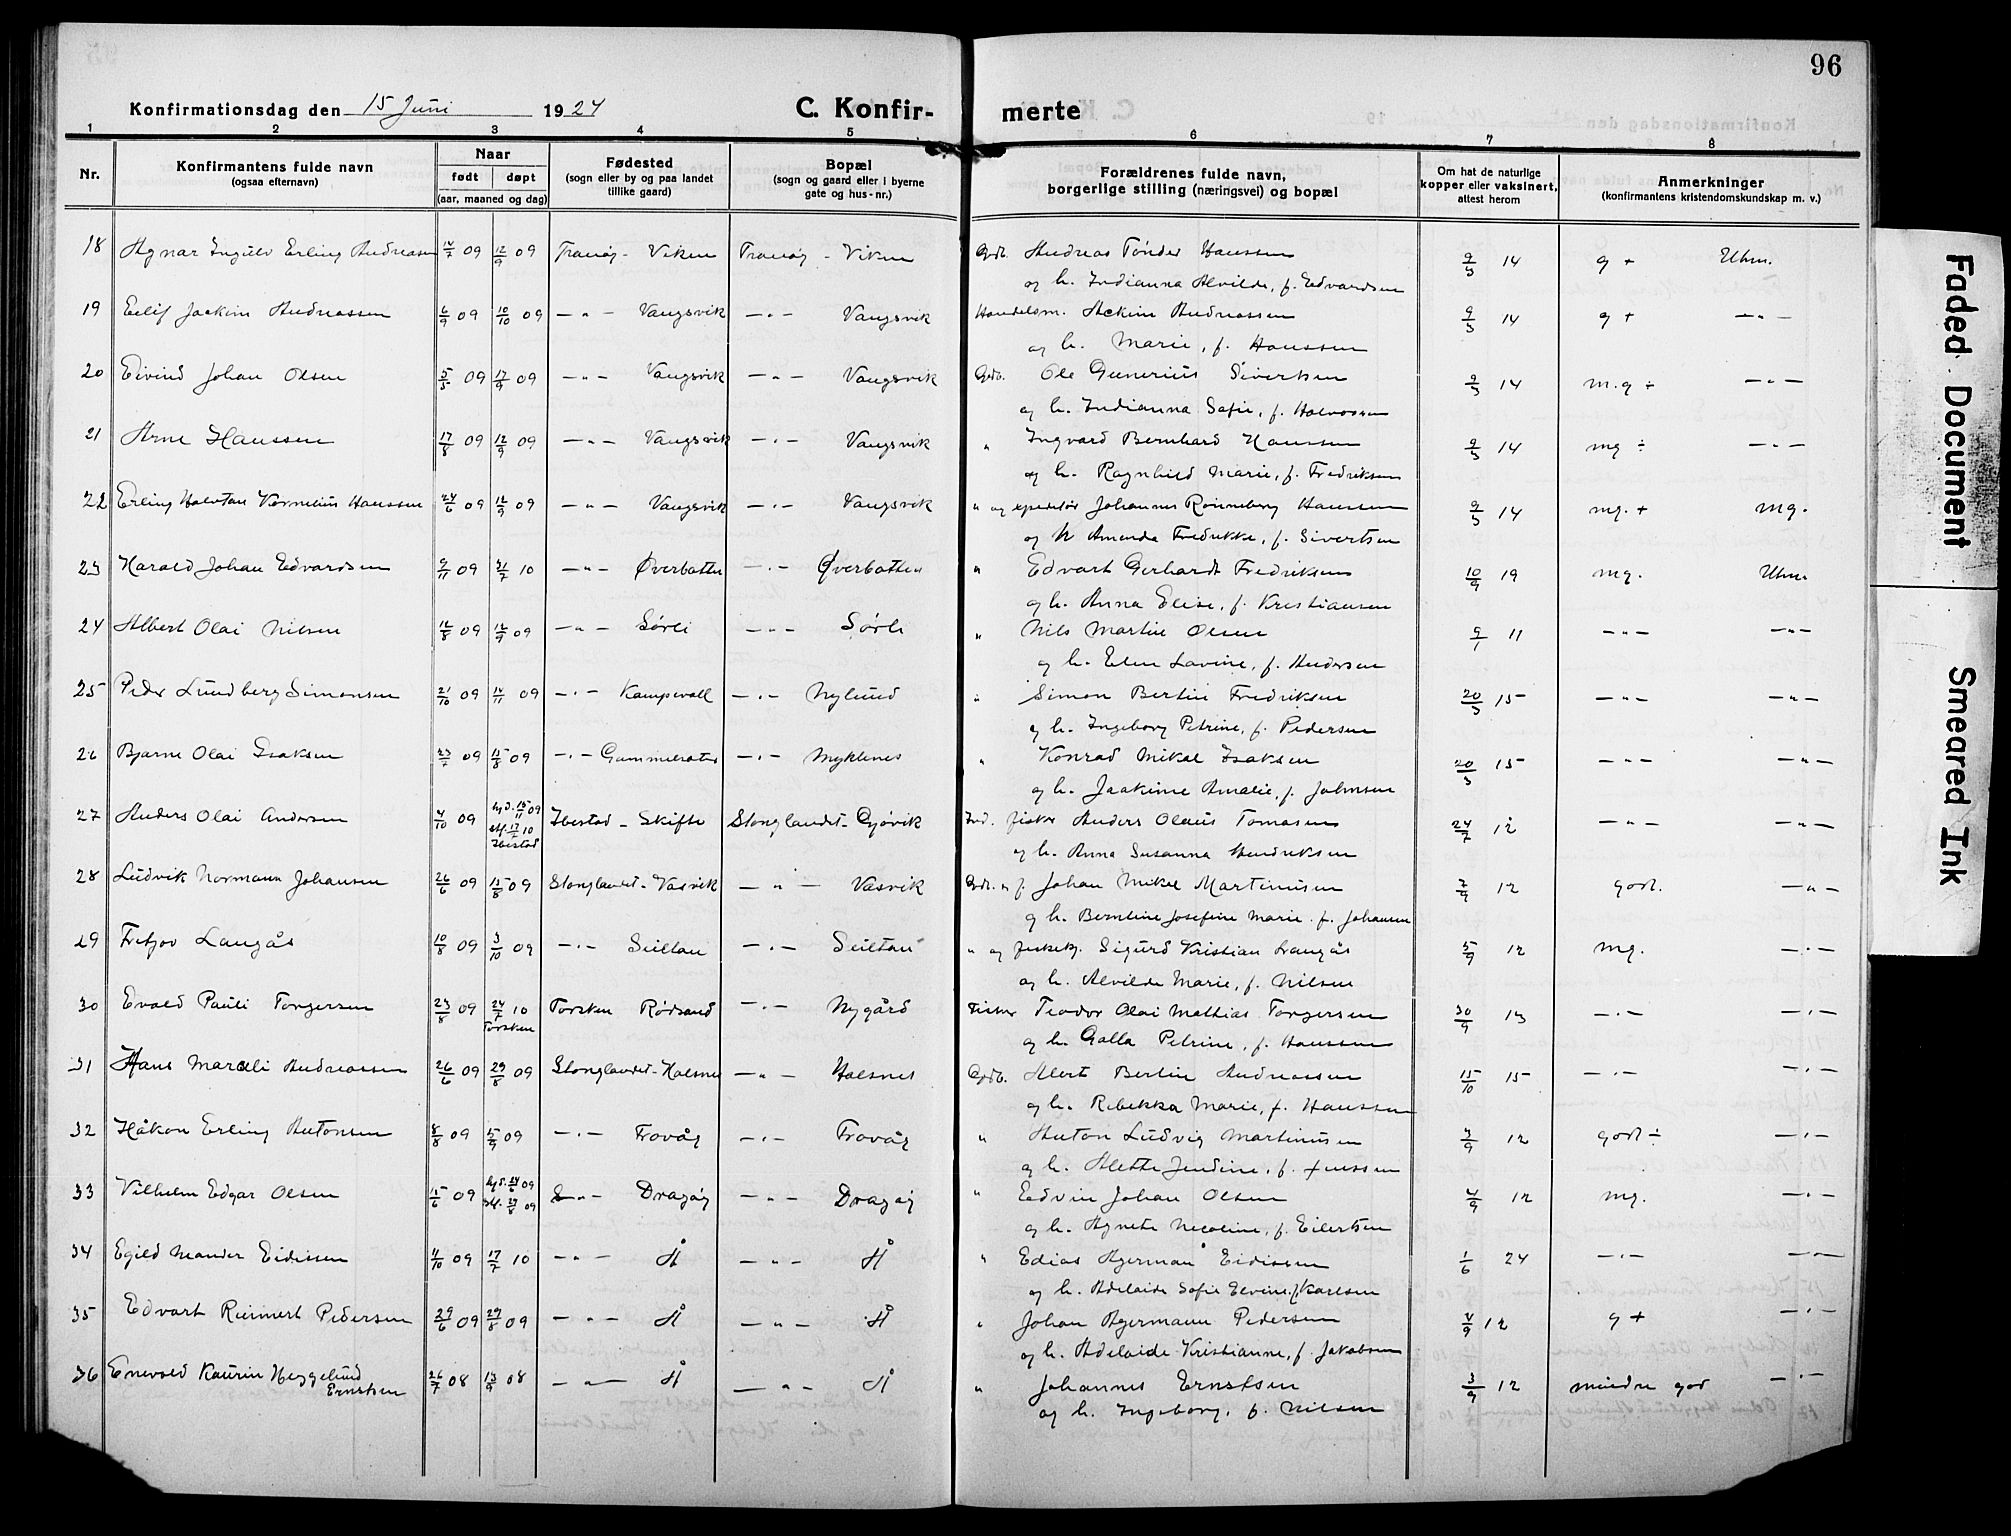 96
Konfirmationsdag den 15 Juni 1924
C. Konfirmerte
1 2 3 4 5 6 7 8
Nr.
Konfirmantens fulde navn
(ogsaa efternavn)
Naar
født døpt
(aar, maaned og dag)
Fødested
(sogn eller by og paa landet
tillike gaard)
Bopæl
(sogn og gaard eller i byerne
gate og hus-nr.)
Forældrenes fulde navn,
borgerlige stilling (næringsvei) og bopæl
Om hat de naturlige
kopper eller vaksinert,
attest herom
Anmerkninger
(konfirmantens kristendomskundskap m. v.)
18 Agnar Ingulv Erling Andreassen 14/7 09 12/9 09 Tranøy - Viken Tranøy - Viken Gdb. Andreas Tønder Hanssen 9/5 14 g + Uhm.
og h. Indianna Alvilde, f. Edvardsen
19 Eilif Joakim Andreassen 6/9 09 10/10 09 — " — Vangsvik — " — Vangsvik Handelsm. Ackim Andreassen 9/5 14 g + — " —
og h. Marie, f. Hanssen
20 Eivind Johan Olsen 5/5 09 12/9 09 — " — Vangsvik — " — Vangsvik Gdb. Ole Gunerius Sivertsen 9/5 14 m.g ÷ — " —
og h. Indianna Sofie, f. Halvorsen
21 Arne Hanssen 17/8 09 12/9 09 — " — Vangsvik — " — Vangsvik " Ingvard Bernhard Hanssen 9/5 14 mg ÷ — " —
og h. Ragnhild Marie, f. Fredriksen
22 Erling Halvtan Kornelius Hanssen 24/6 09 12/9 09 — " — Vangsvik — " — Vangsvik " og expeditør Johannes Rønneberg Hanssen 9/5 14 mg. + mg.
og h Amanda Fredrikke, f. Sivertsen
23 Harald Johan Edvardsen 9/11 09 31/7 10 — " — Øverbotten — " — Øverbotten " Edvart Gerhardt Fredriksen 10/9 19 mg. Uhm.
og h. Anna Elise, f. Kristiansen
24 Albert Olai Nilsen 12/8 09 12/9 09 — " — Sørli — " — Sørli " Nils Martin Olsen 9/1 11 — " — — " —
og h. Elen Lavine, f. Andersen
25 Peder Lundberg Simonsen 21/10 09 14/11 09 — " — Kampevoll — " — Nylund " Simon Bertin Fredriksen 20/5 15 — " — — " —
og h. Ingeborg Petrine, f. Pedersen
26 Bjarne Olai Isaksen 23/7 09 15/8 09 — " — — " — Myklenes " Konrad Mikal Isaksen 20/5 15 — " — — " —
og h. Joakime Amalie, f. Johnsen
27 Anders Olai Andersen 4/10 09 hjd. 15/11 09 Ibestad - Skifte Stonglandet - Gjøvik Ind. fisker Anders Olaus Tomasen 24/7 12 — " — — " —
stf. 17/7 10
Ibestad
og h. Anna Susanna Hendriksen
28 Ludvik Normann Johansen 26/6 09 15/8 09 Stonglandet - Vasvik — " — Vasvik Gdb. og f. Johan Mikal Martinusen 7/9 12 godt. — " —
og h. Berntine Josefine Marie. f. Johansen
29 Fritjov Langås 10/8 09 3/10 09 — " — Sultan — " — Sultan " og fiskekj. Sigurd Kristian Langås 5/9 12 mg. — " —
og h. Alvilde Marie, f. Nilsen
30 Evald Pauli Torgersen 23/8 09 24/7 10 Torsken Rødsand — " — Nygård Fisker Teodor Olai Mathias Torgersen 30/9 13 — " — — " —
Torsken
og h. Galla Petrine, f. Hanssen
31 Hans Marseli Andreassen 26/6 09 29/8 09 Stonglandet - Halsnes — " — Halsnes Gdb. Alert Bertin Andreassen 15/10 15 — " — — " —
og h. Rebekka Marie, f. Hanssen
32 Håkon Erling Antonsen 8/8 09 5/9 09 — " — Trovåg — " — Trovåg " Anton Ludvig Martinusen 3/9 12 godt ÷ — " —
og h. Alette Jendine, f. Jenssen
33 Vilhelm Edgar Olsen 15/6 09 hjd. 24/6 09 — " — Dragøy — " — Dragøy " Edvin Johan Olsen 4/9 12 mg. — " —
stf. 29/8 09
og h. Agnete Nicoline, f. Eilertsen
34 Egild Nander Eidissen 11/10 09 17/7 10 — " — Å — " — Å " Edias Agerman Eidissen 1/6 24 — " — — " —
og h. Adelaide Sofie Elvine, f. Karlsen
35 Edvart Reinert Pedersen 29/6 09 29/8 09 — " — Å — " — Å " Johan Agermann Pedersen 4/9 12 g + — " —
og h. Adelaide Kristianne, f. Jakobsen
36 Enevold Kaurin Heggelund 26/7 08 13/9 08 — " — Å — " — Å " Johannes Ernstsen 3/9 12 mindre god — " —
Ernstsen
og h. Ingeborg, f. Nilsen
Faded Document
Smeared Ink